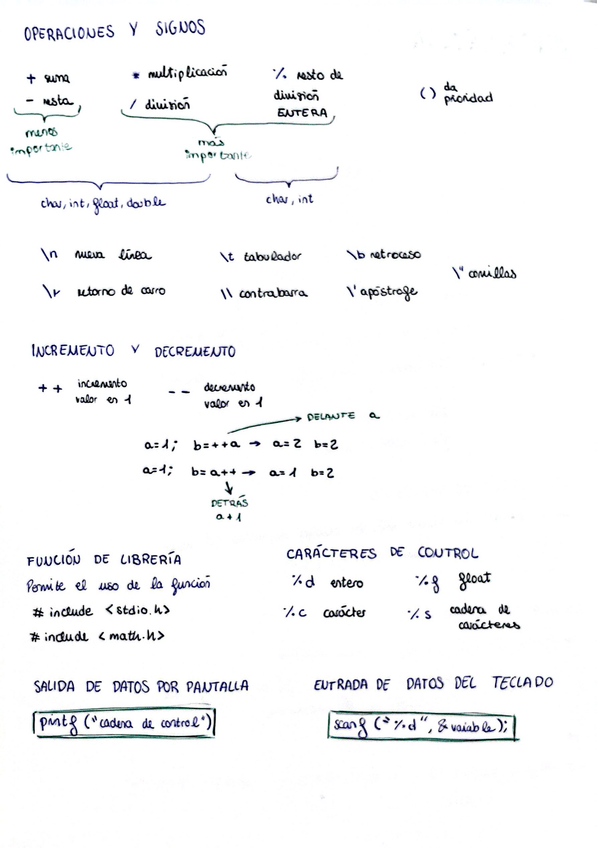 OPERACIONES Y SIGNOS
+ suma
* multiplicación
% resto de
división
ENTERA
( ) da
prioridad
- resta
/ división
menos
importante
más
importante
char, int, float, double
char, int
\n nueva línea
\t tabulador
\b retroceso
\" comillas
\r retorno de carro
\\ contrabarra
\' apóstrofe
INCREMENTO Y DECREMENTO
++ incremento
valor en 1
-- decremento
valor en 1
DELANTE a
a=1; b=++a → a=2 b=2
a=1; b=a++ → a=1 b=2
DETRÁS
a+1
FUNCIÓN DE LIBRERÍA
Permite el uso de la función
# include <stdio.h>
# include <math.h>
CARÁCTERES DE CONTROL
%d entero
%f float
%c carácter
%s cadena de
carácteres
SALIDA DE DATOS POR PANTALLA
printf ("cadena de control")
ENTRADA DE DATOS DEL TECLADO
scanf ("%d", &variable);